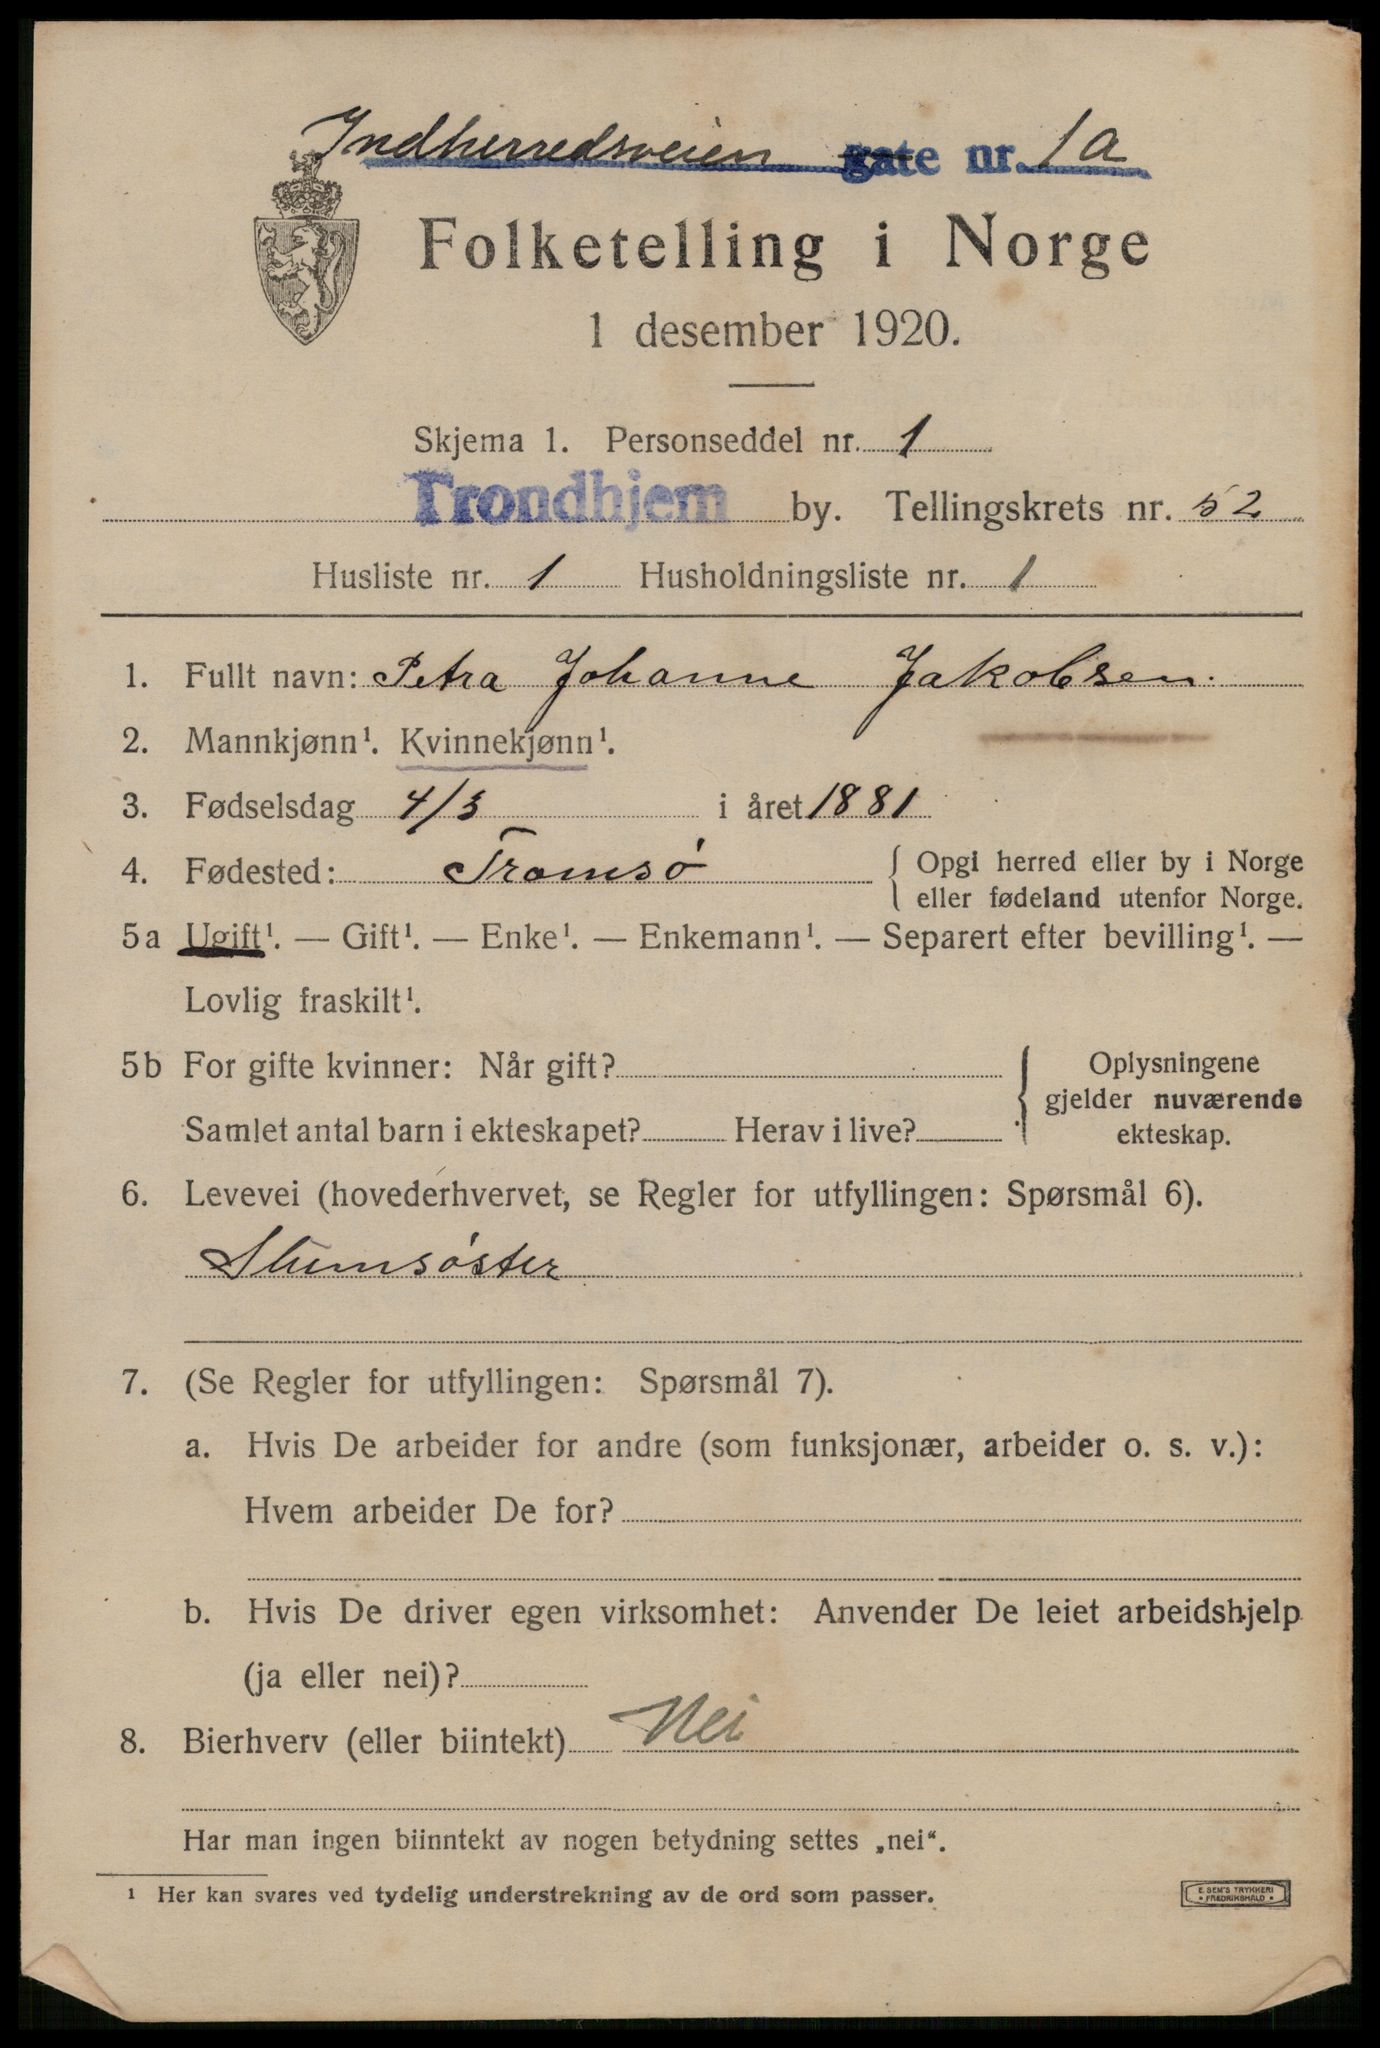 Indherredsveien gate nr. 1a
Folketelling i Norge
1 desember 1920.
Skjema 1. Personseddel nr. 1
Trondhjem by. Tellingskrets nr. 52
Husliste nr. 1 Husholdningsliste nr. 1
1. Fullt navn: Petra Johanne Jakobsen.
2. Mannkjønn¹. Kvinnekjønn¹.
3. Fødselsdag 4/3 i året 1881
4. Fødested: Tromsø { Opgi herred eller by i Norge
eller fødeland utenfor Norge.
5a Ugift¹. — Gift¹. — Enke¹. — Enkemann¹. — Separert efter bevilling¹. —
Lovlig fraskilt¹.
5b For gifte kvinner: Når gift? { Oplysningene
gjelder nuværende
Samlet antal barn i ekteskapet? Herav i live? ekteskap.
6. Levevei (hovederhvervet, se Regler for utfyllingen: Spørsmål 6).
Slumsøster
7. (Se Regler for utfyllingen: Spørsmål 7).
a. Hvis De arbeider for andre (som funksjonær, arbeider o. s. v.):
Hvem arbeider De for?
b. Hvis De driver egen virksomhet: Anvender De leiet arbeidshjelp
(ja eller nei)?
8. Bierhverv (eller biintekt) Nei
Har man ingen biinntekt av nogen betydning settes „nei“.
¹ Her kan svares ved tydelig understrekning av de ord som passer.
E. SEM'S TRYKKERI
FREDRIKSHALD